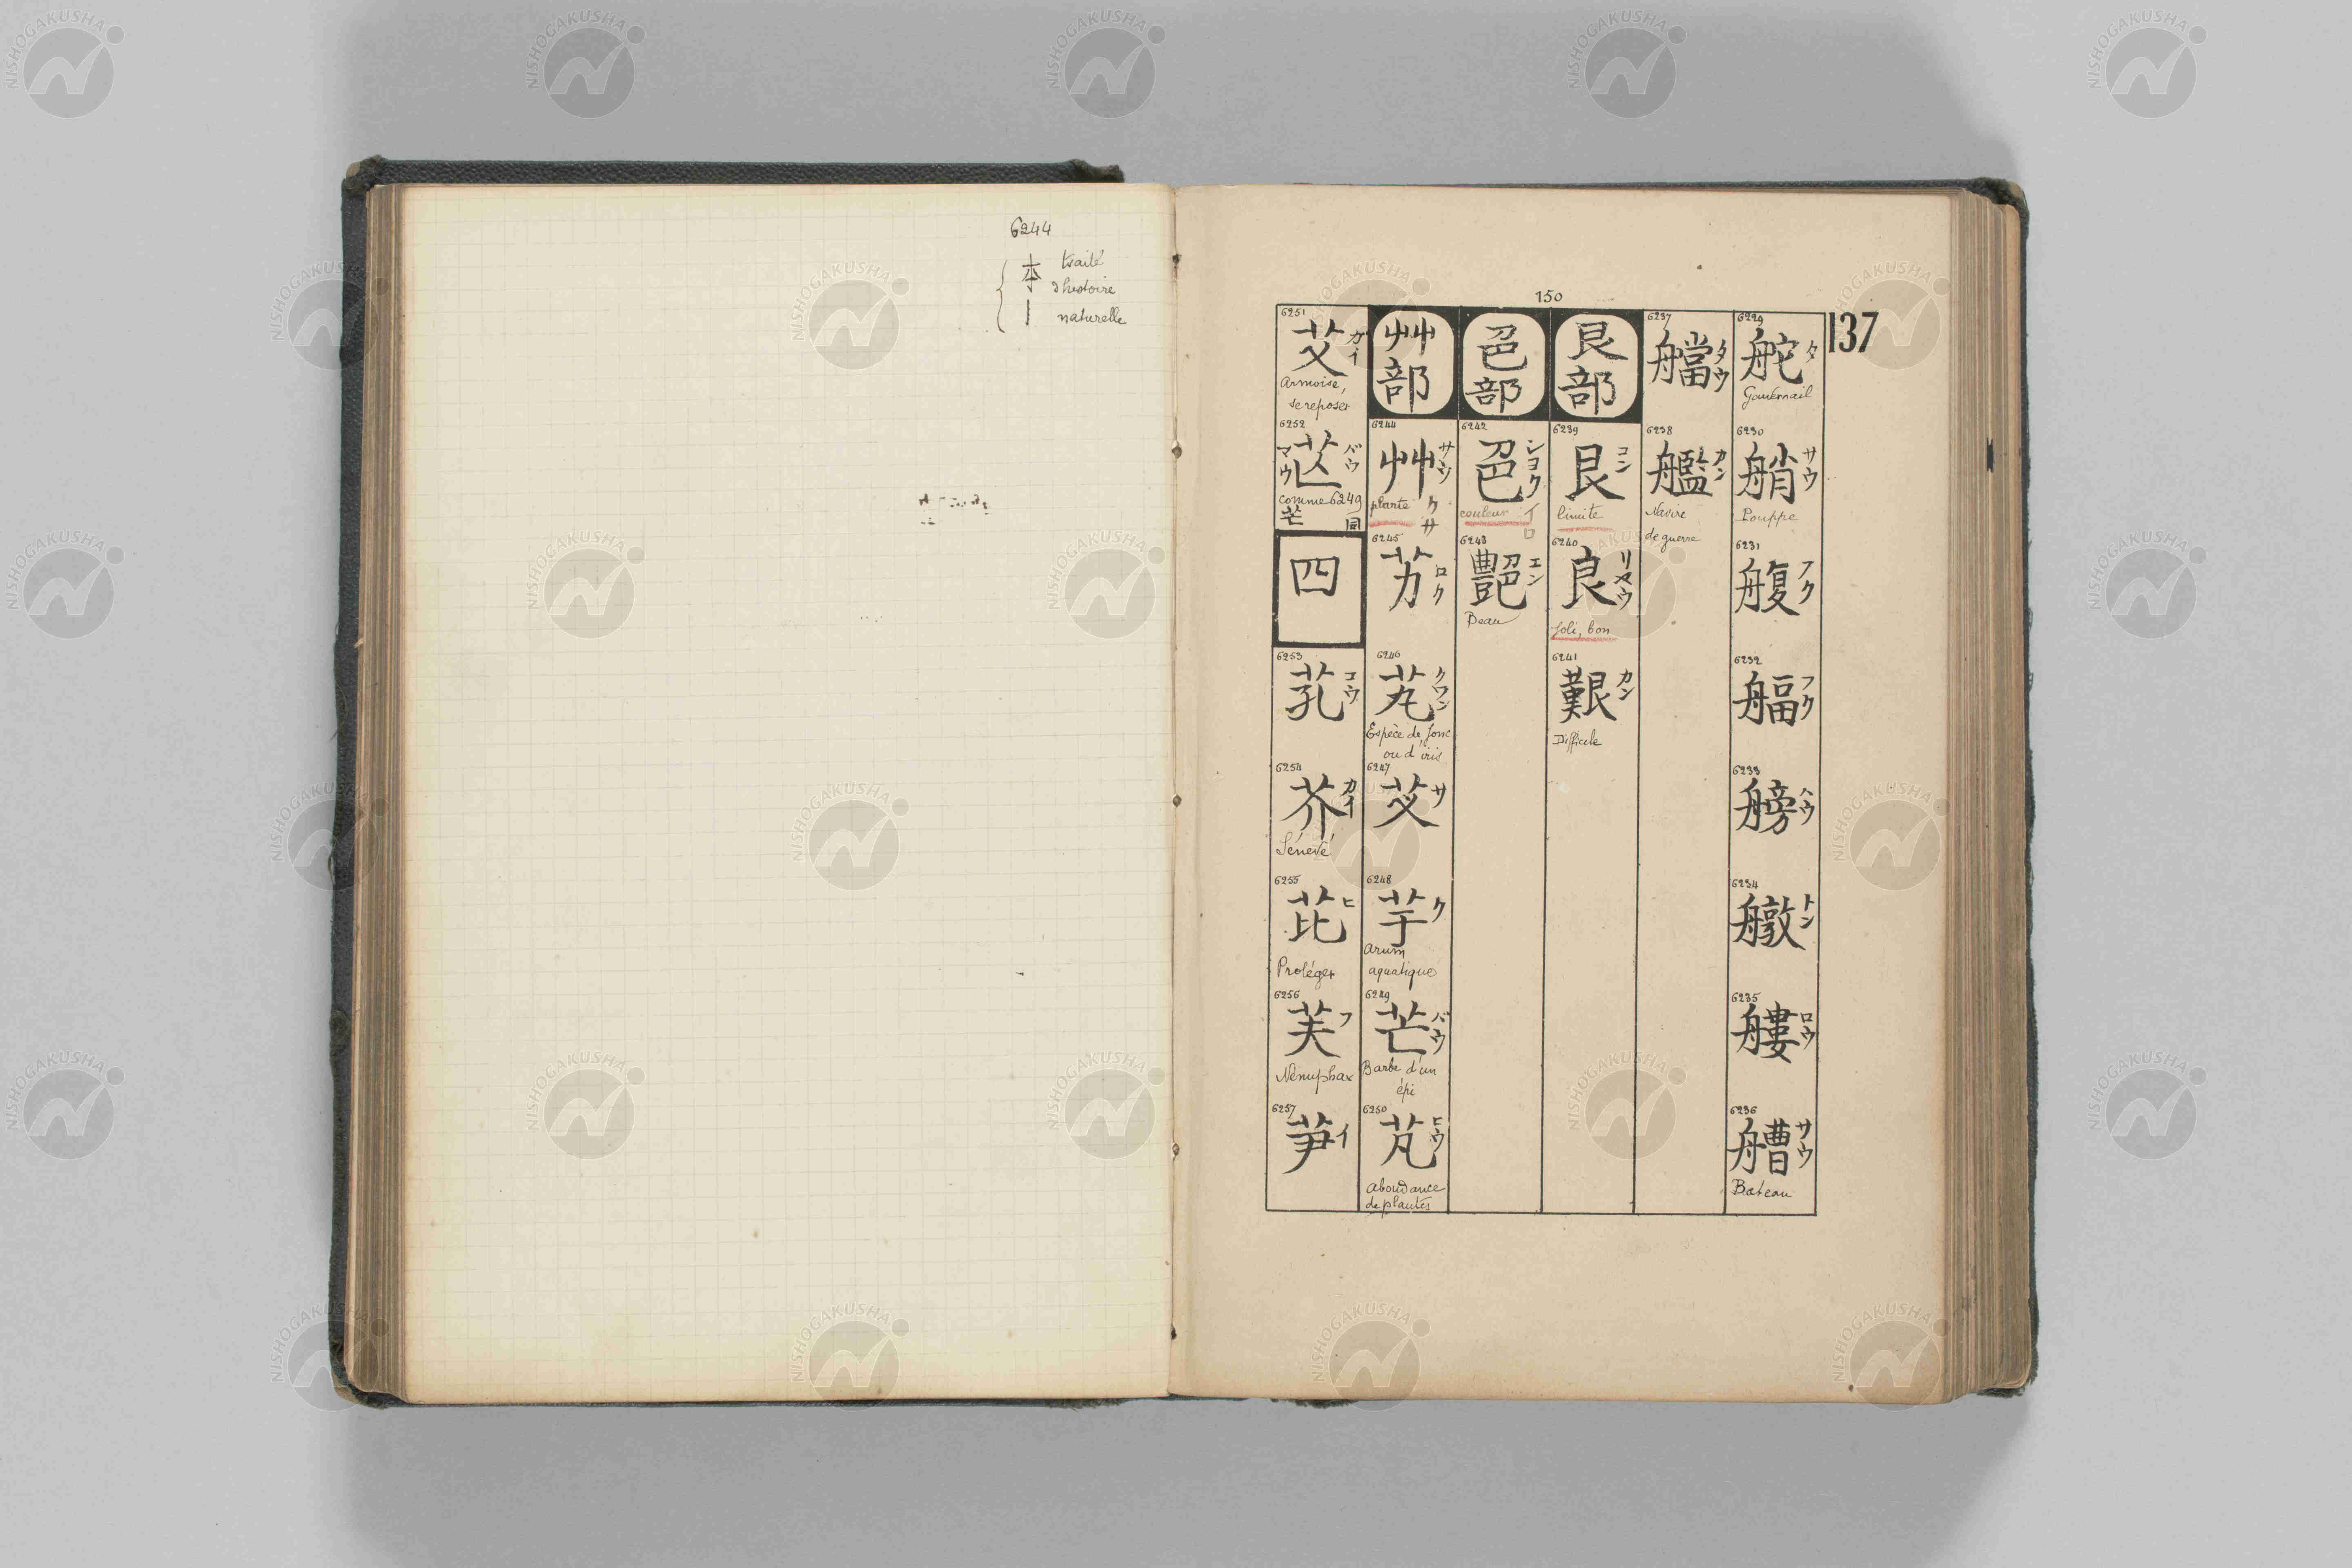 6244
本 traité
d'histoire
| naturelle
150
137
6229
舵 タ
Gouvernail
6230
艄 サウ
Pouppe
6231
艘 フク
6232
艏 フク
6233
艕 ハウ
6234
艜 トン
6235
艛 ロウ
6236
艚 サウ
Bateau
6237
艡 タウ
6238
艦 カン
Navire
de guerre
艮部
6239
艮 コン
limite
6240
良 リヤウ
Joli, bon
6241
艱 カン
Difficile
色部
6242
色 シヨク イロ
couleur
6243
艶 エン
Beau
艸部
6244
艸 サウ クサ
plante
6245
艻 ロク
6246
芄 クワン
Espèce de Jonc
ou d'iris
6247
芆 サ
6248
芋 ク
Arum
aquatique
6249
芒 バウ
Barbe d'un
épi
6250
芃 ヒウ
abondance
de plantes
6251
艾 ガイ
Armoise,
se reposer
6252
バウ マウ
comme 6249
芒 同
四
6253
芤 コウ
6254
芥 カイ
Sénevé
6255
芘 ヒ
Protéger
6256
芙 フ
Nénuphar
6257
芛 イ
NISHOGAKUSHA